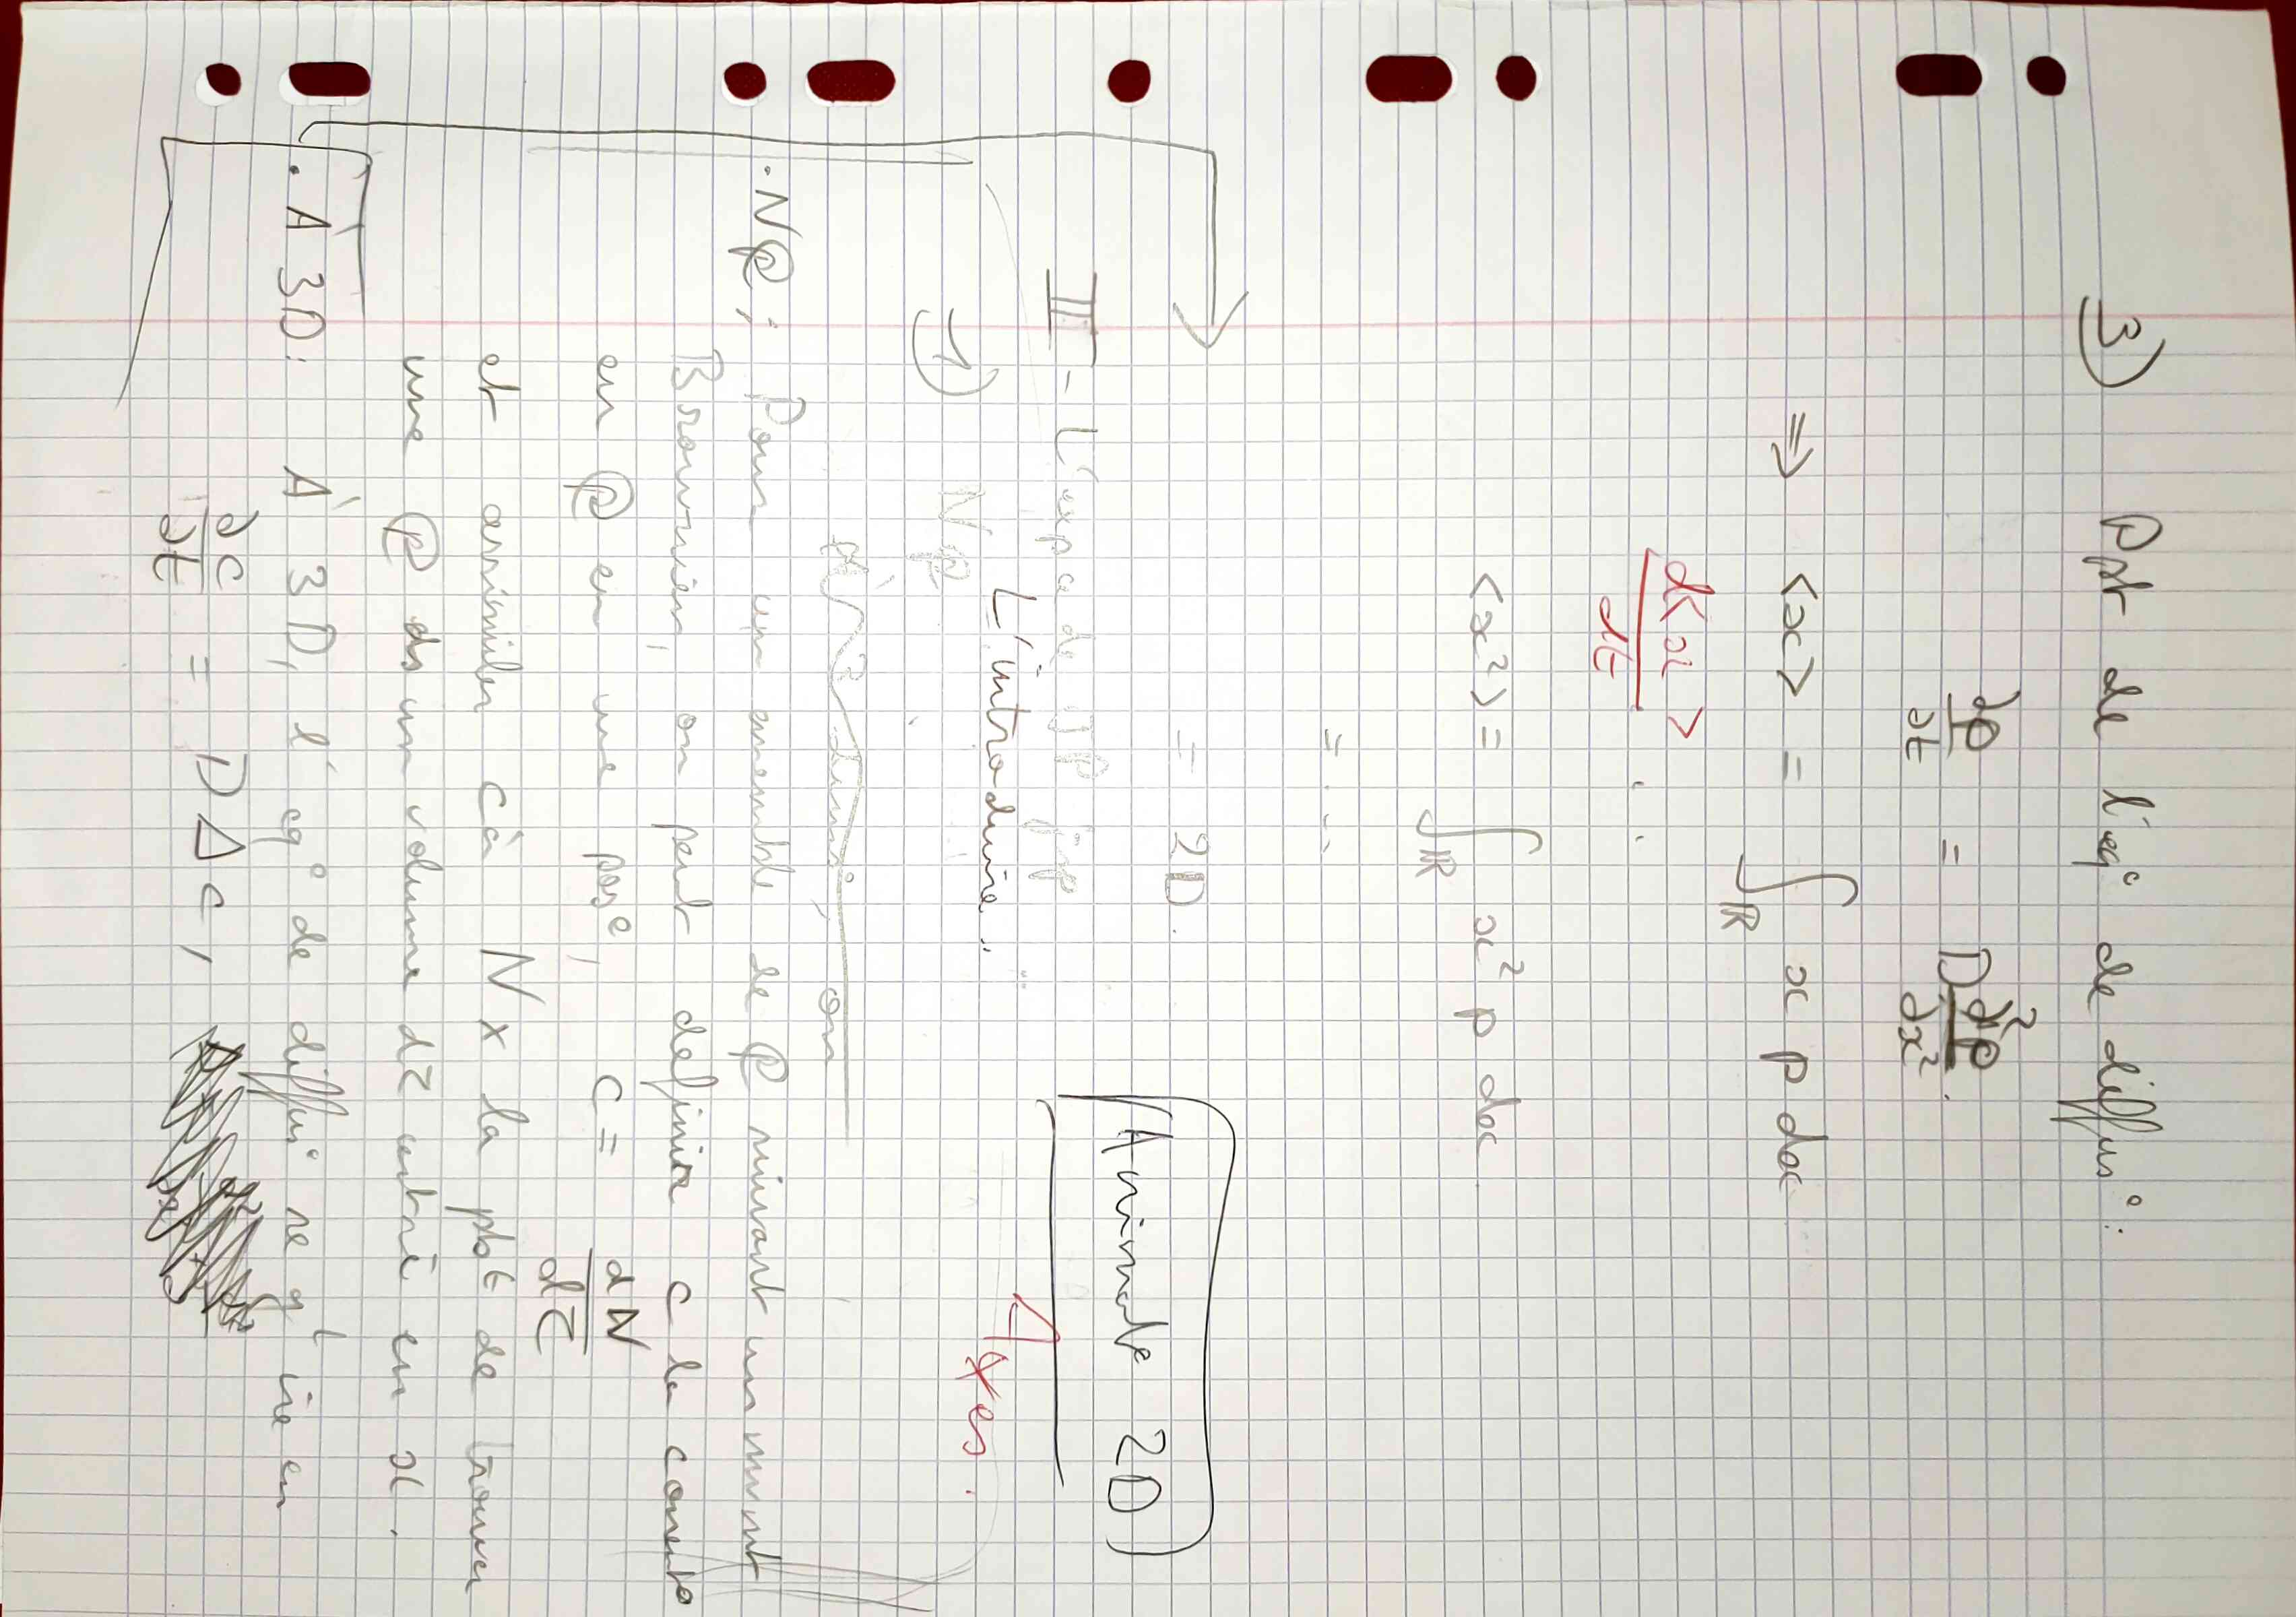 3) Ppt de l'eq° de diffus° :
∂p/∂t = D ∂²p/∂x² .
⇒ <x> = ∫_ℝ x p dx
d<x>/dt . .
<x²> = ∫_ℝ x² p dx
= ...
= 2D.
(Animate 2D)
II - L'exp de
L'introduire.
1) Np
⚠ axes.
on
· N℗ : Pour un ensemble de ℗ suivant un mvmt
Brownien, on peut definir c la conc
en ℗ en une pos°, c = dN/dτ
et assimiler c à N x la pbt de trouver
une ℗ ds un volume dτ centré en x.
· À 3D: À 3D, l'eq° de diffus° se g
∂c/∂t = D Δ c,